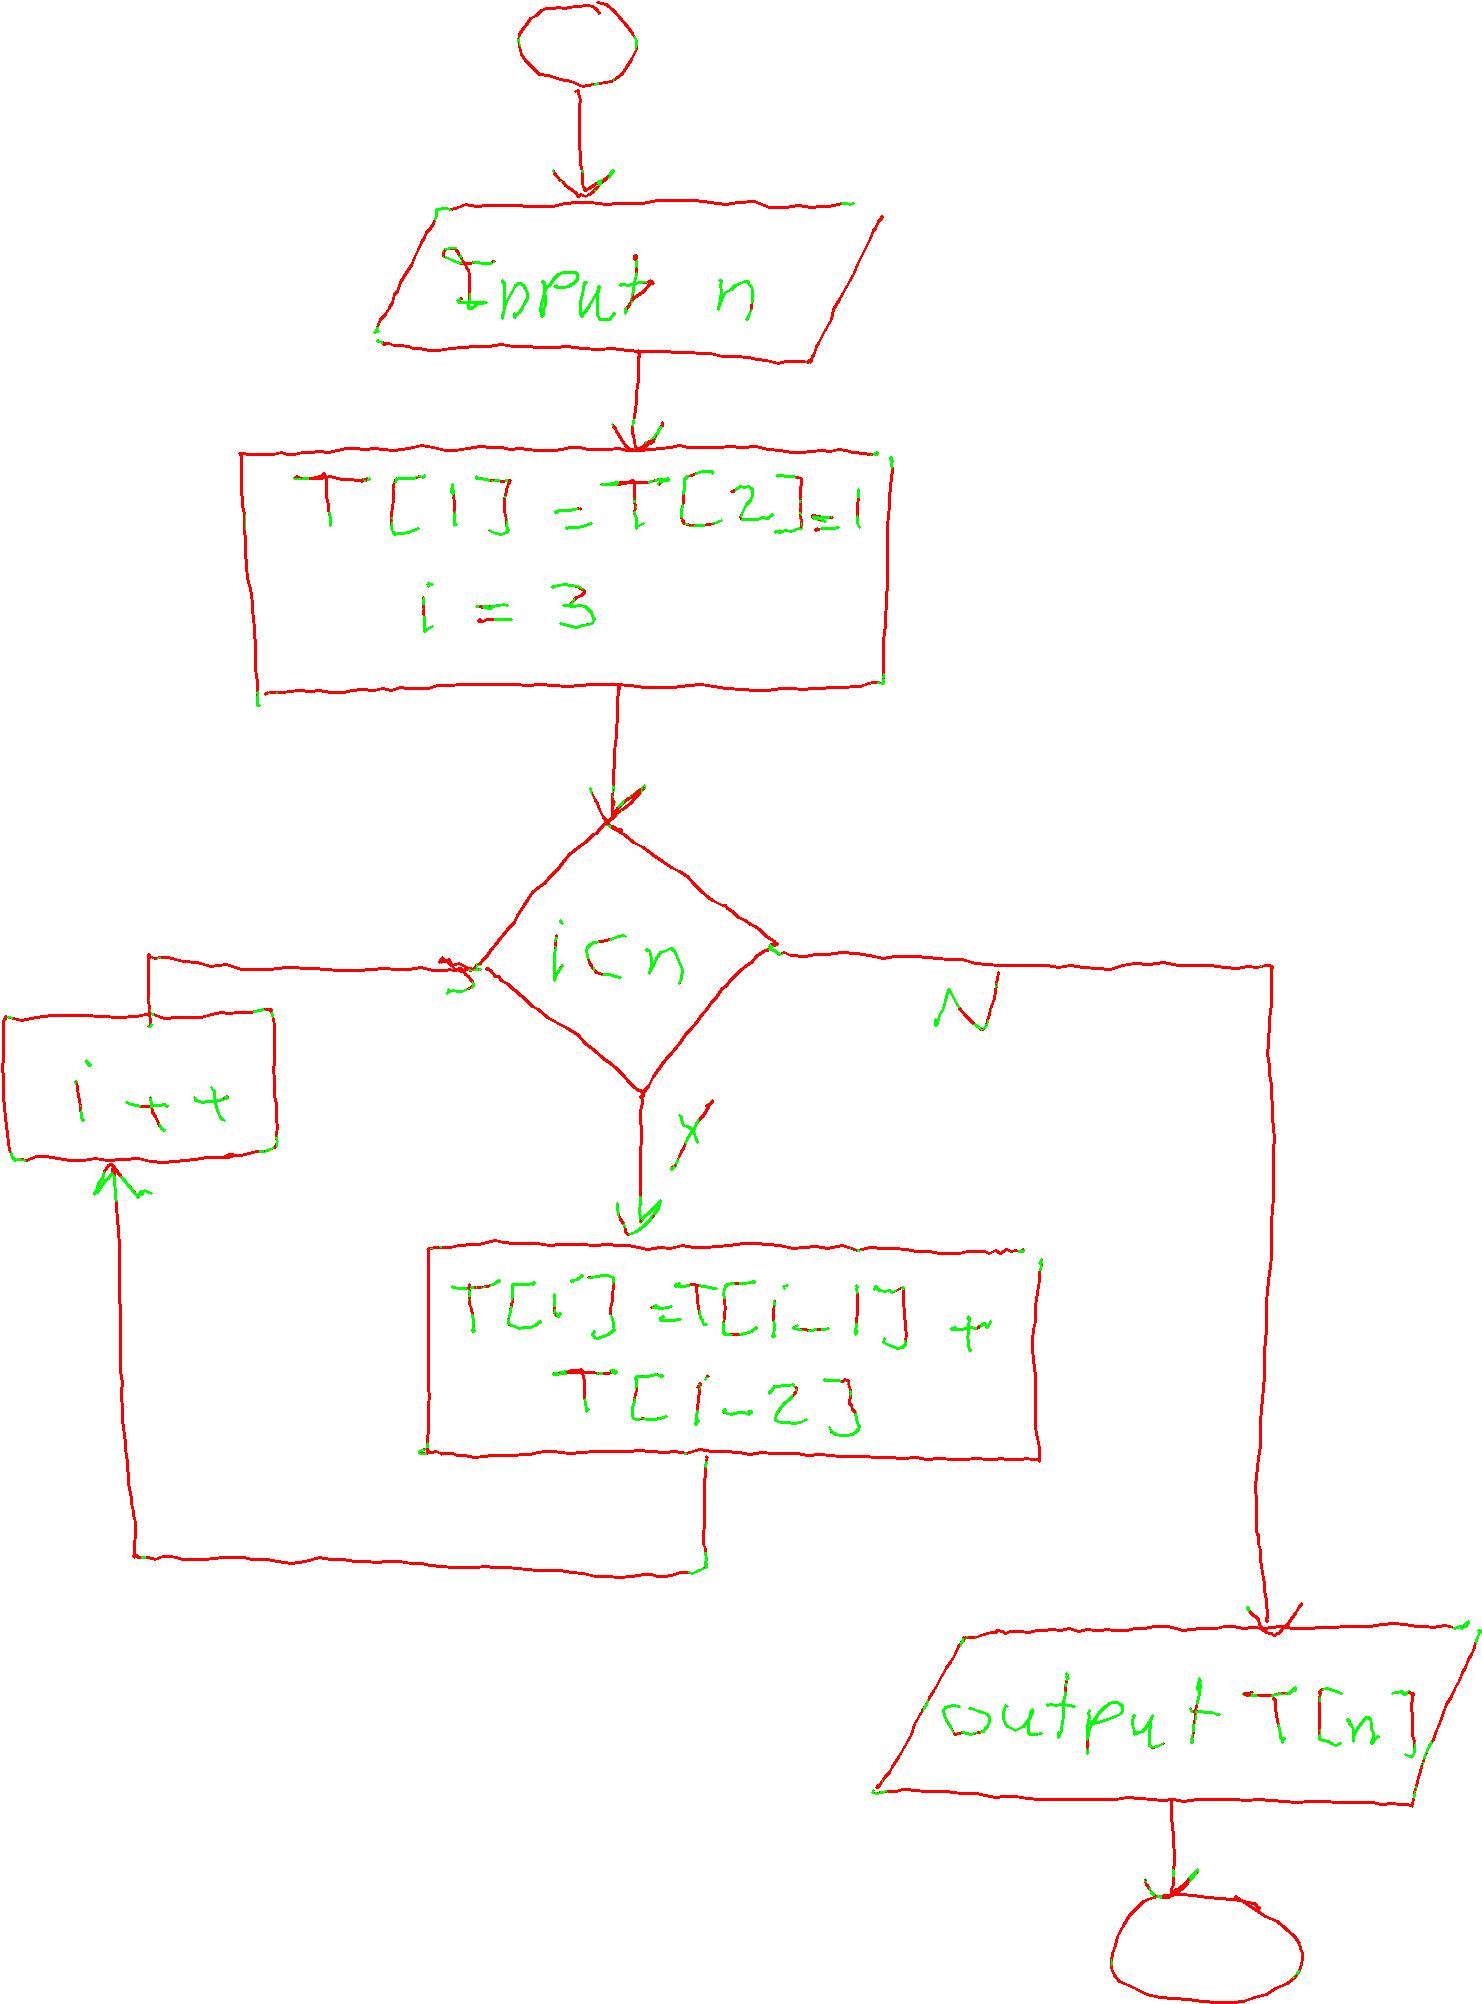 Input n
T[1] = T[2]=1
i = 3
i<n
N
i++
Y
T[i] =T[i-1] +
T[i-2]
output T[n]